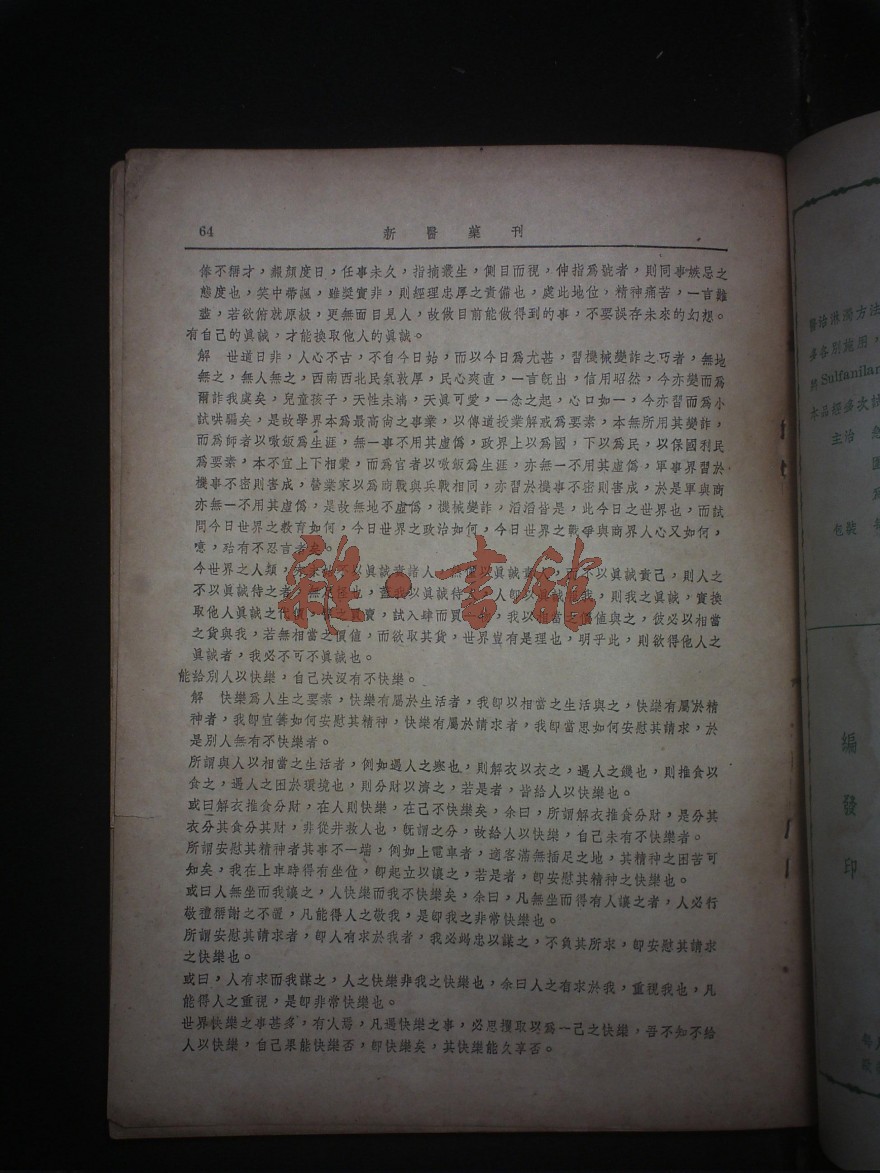 64
新醫藥刊
俸不稱才，靦顏度日，任事未久，指摘叢生，側目而視，伸指爲號者，則同事嫉忌之
態度也，笑中帶諷，雖獎實非，則經理忠厚之責備也，處此地位，精神痛苦，一言難
盡，若欲俯就原級，更無面目見人，故做目前能做得到的事，不要誤存未來的幻想。
有自己的眞誠，才能換取他人的眞誠。
解　世道日非，人心不古，不自今日始，而以今日爲尤甚，習機械變詐之巧者，無地
無之，無人無之，西南西北民氣敦厚，民心爽直，一言旣出，信用昭然，今亦變而爲
爾詐我虞矣，兒童孩子，天性未漓，天眞可愛，一念之起，心口如一，今亦習而爲小
試哄騙矣，是故學界本爲最高尙之事業，以傳道授業解惑爲要素，本無所用其變詐，
而爲師者以噉飯爲生涯，無一事不用其虛僞，政界上以爲國，下以爲民，以保國利民
爲要素，本不宜上下相蒙，而爲官者以噉飯爲生涯，亦無一不用其虛僞，軍事界習於
機事不密則害成，營業家以爲商戰與兵戰相同，亦習於機事不密則害成，於是軍與商
亦無一不用其虛僞，是故無地不虛僞，機械變詐，滔滔皆是，此今日之世界也，而試
問今日世界之敎育如何，今日世界之政治如何，今日世界之戰爭與商界人心又如何，
噫，殆有不忍言者矣。
今世界之人類，不以眞誠責諸人，以眞誠責，不以眞誠責己，則人之
不以眞誠侍之者，無怪也，蓋我以眞誠侍人，人卽以眞誠侍我，則我之眞誠，實換
取他人眞誠之代價，之買賣，試入肆而買一物，我以相當之價值與之，彼必以相當
之貨與我，若無相當之價值，而欲取其貨，世界豈有是理也，明乎此，則欲得他人之
眞誠者，我必不可不眞誠也。
能給別人以快樂，自己決沒有不快樂。
解　快樂爲人生之要素，快樂有屬於生活者，我卽以相當之生活與之，快樂有屬於精
神者，我卽宜籌如何安慰其精神，快樂有屬於請求者，我卽當思如何安慰其請求，於
是別人無有不快樂者。
所謂與人以相當之生活者，例如遇人之寒也，則解衣以衣之，遇人之饑也，則推食以
食之，遇人之困於環境也，則分財以濟之，若是者，皆給人以快樂也。
或曰解衣推食分財，在人則快樂，在己不快樂矣，余曰，所謂解衣推食分財，是分其
衣分其食分其財，非從井救人也，旣謂之分，故給人以快樂，自己未有不快樂者。
所謂安慰其精神者其事不一端，例如上電車者，適客滿無插足之地，其精神之困苦可
知矣，我在上車時得有坐位，卽起立以讓之，若是者，卽安慰其精神之快樂也。
或曰人無坐而我讓之，人快樂而我不快樂矣，余曰，凡無坐而得有人讓之者，人必行
敬禮稱謝之不置，凡能得人之敬我，是卽我之非常快樂也。
所謂安慰其請求者，卽人有求於我者，我必竭忠以謀之，不負其所求，卽安慰其請求
之快樂也。
或曰，人有求而我謀之，人之快樂非我之快樂也，余曰人之有求於我，重視我也，凡
能得人之重視，是卽非常快樂也。
世界快樂之事甚多，有人焉，凡遇快樂之事，必思攫取以爲一己之快樂，吾不知不給
人以快樂，自己果能快樂否，卽快樂矣，其快樂能久享否。
雜·書館
醫治淋濁方法
多各別施用，
與Sulfanilam
本品經多次試
主治
包裝
編
發
印